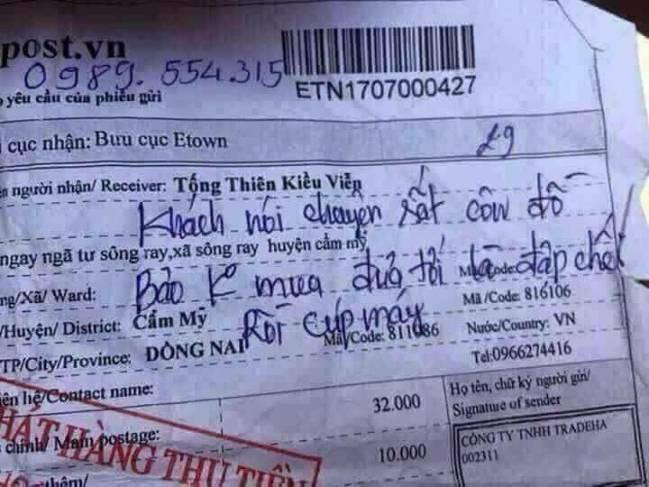 post.vn
0989.554.315
ETN1707000427
yêu cầu của phiếu gửi
cục nhận: Bưu cục Etown
29
người nhận/ Receiver: Tống Thiên Kiều Viễn
Khách nói chuyện rất côn đồ
ngay ngã tư sông ray,xã sông ray huyện cẩm mỹ
Bảo k mua đưa tới là đập chết
ng/Xã/ Ward: Mã/Code: 816106
Rồi cúp máy
/Huyện/ District: Cẩm Mỹ Mã/Code: 811086 Nước/Country: VN
TP/City/Province: ĐỒNG NAI Tel:0966274416
iên hệ/Contact name: 32.000 Họ tên, chữ ký người gửi/
Signature of sender
chính/ Main postage: 10.000 CÔNG TY TNHH TRADEHA
002311
HÁT HÀNG THU TIỀN
thêm/